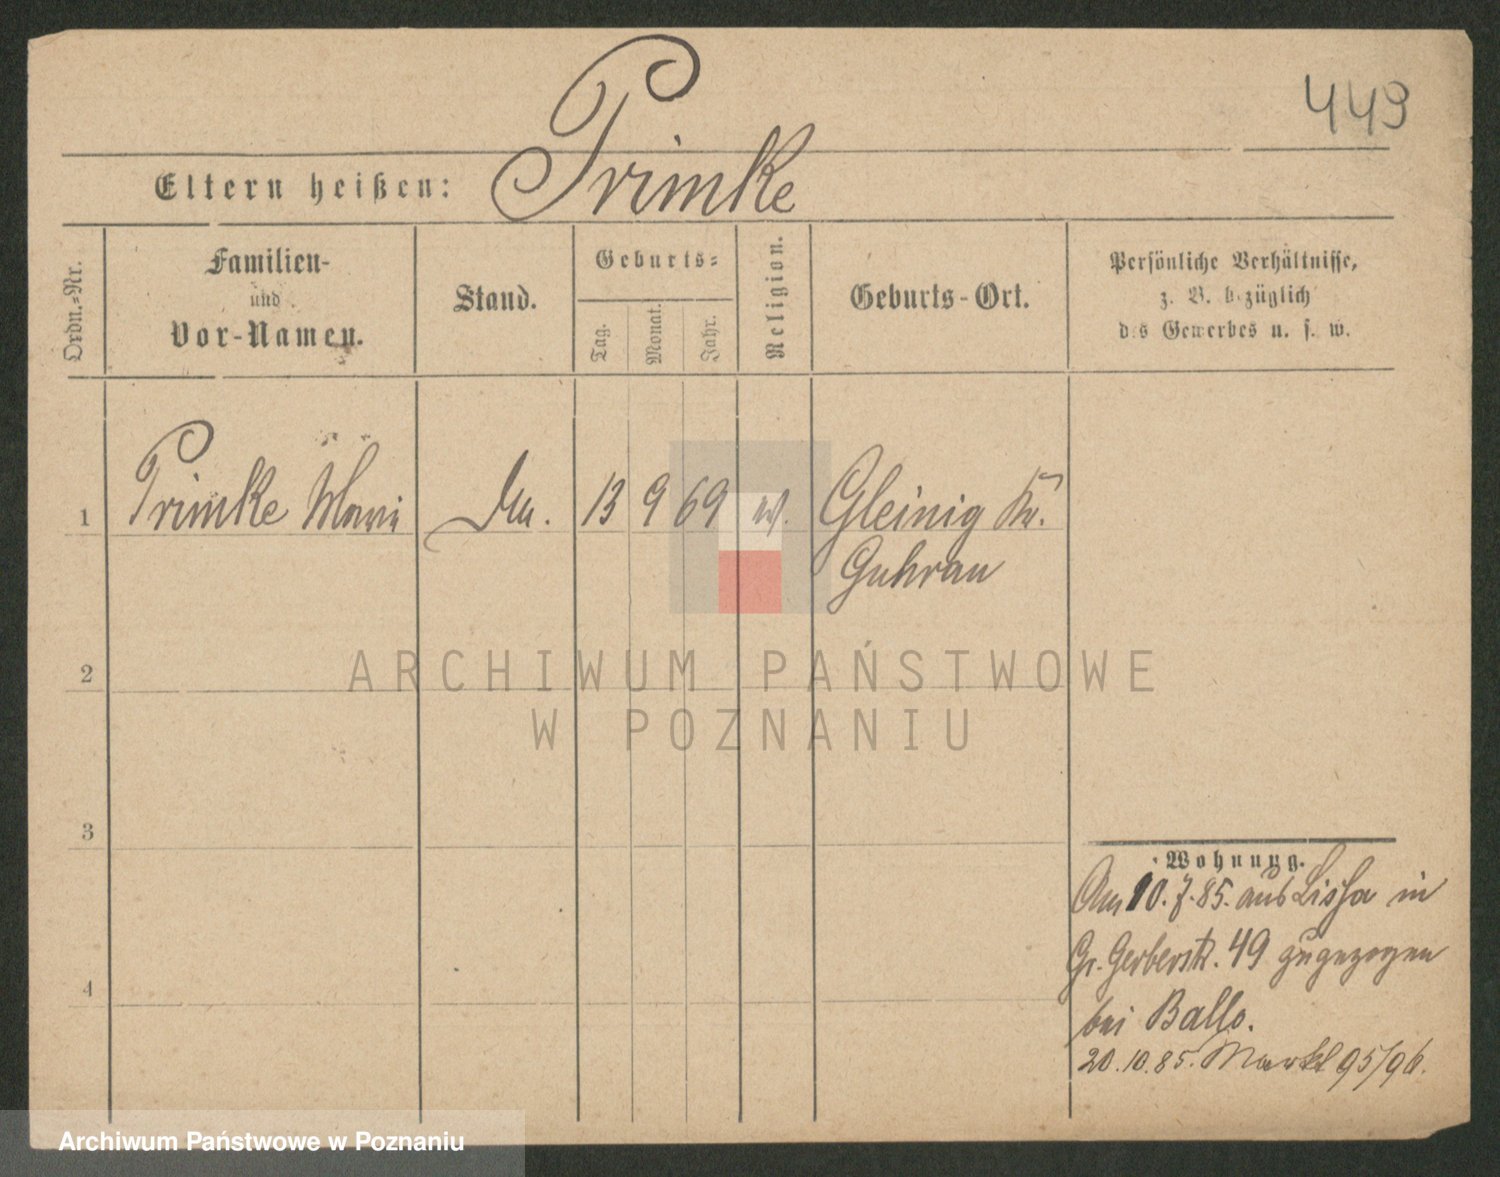 449
Eltern heißen: Primke
Ordn.-Nr.
Familien-
und
Vor-Namen.
Stand.
Geburts-
Tag.
Monat.
Jahr.
Religion.
Geburts-Ort.
Persönliche Verhältnisse,
z. B. bezüglich
des Gewerbes u. s. w.
1 Primke 13 9 69 Gleinig Kr.
Guhrau
2
3
4
ARCHIWUM PAŃSTWOWE
W POZNANIU
Wohnung.
Am 10. 7. 85. aus Lissa in
Gr. Gerberstr. 49 zugezogen
bei
20. 10. 85. Markt 95/96.
Archiwum Państwowe w Poznaniu